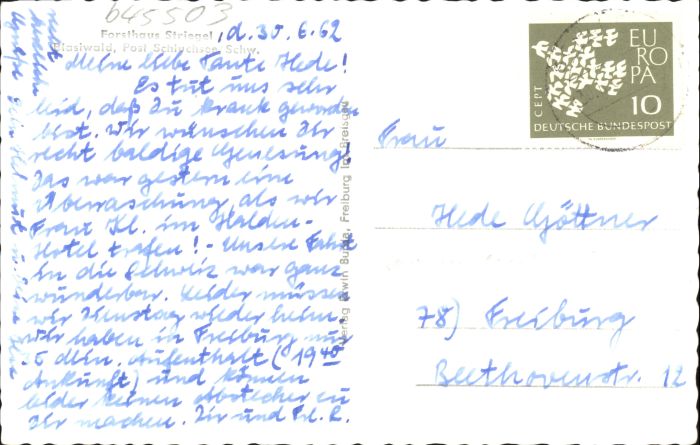 645503
Forsthaus Striegel
Blasiwald, Post Schluchsee, Schw.
,d. 30.6.62
Meine liebe Tante Hede!
Es tut uns sehr
leid, daß Du krank geworden
bist. Wir wünschen Dir
recht baldige Genesung!
Das war gestern eine
Überraschung, als wir
Frau Kl. im Halden-
Hotel trafen! - Unsere Fahrt
in die Schweiz war ganz
wunderbar. Leider müssen
wir Dienstag wieder heim.
Wir haben in Freiburg nur
5 Min. Aufenthalt (19 40
Ankunft) und können
leider keinen Abstecher zu
Dir machen. Dir und Frl. R.
recht herzliche
Grüße
Verlag Erwin Burda, Freiburg im Breisgau
EUROPA
CEPT
10
DEUTSCHE BUNDESPOST
Frau
Hede Göttner
78) Freiburg
Beethovenstr. 12